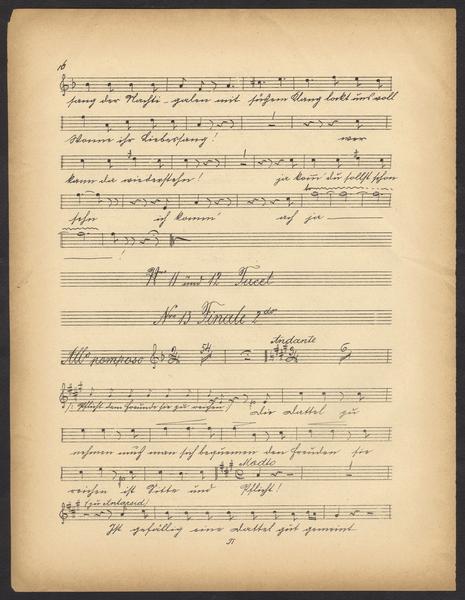 16
sang der Nachti-galen mit süßem Klang lockt uns voll
Wonne ihr Liebessang! wer
kann da wiederstehn! ja komm' du sollst schon
sehn ich komm' ach ja
No 11 und 12 Tacet
Nro 13 Finale 2do
Andante
Allo pomposo
Pflicht dem Freunde sie zu reichen die Dattel zu
nehmen muß man sich bequemen den Freunden sie
Modto
reichen ist Sitte und Pflicht!
(zu Antarsid)
Ist gefällig eine Dattel gut gemeint